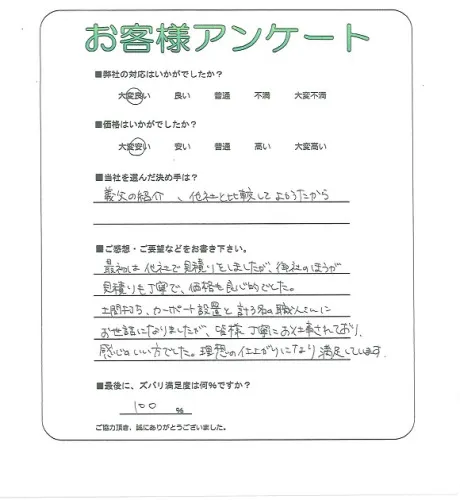 お客様アンケート
■弊社の対応はいかがでしたか？
大変良い　良い　普通　不満　大変不満
■価格はいかがでしたか？
大変安い　安い　普通　高い　大変高い
■当社を選んだ決め手は？
義父の紹介、他社と比較してよかったから
■ご感想・ご要望などをお書き下さい。
最初は他社で見積りをしましたが、御社のほうが
見積りも丁寧で、価格も良心的でした。
土間打ち、カーポート設置と計3名の職人さんに
お世話になりましたが、皆様丁寧にお仕事されており、
感じのいい方でした。理想の仕上がりになり満足しています。
■最後に、ズバリ満足度は何％ですか？
100 ％
ご協力頂き、誠にありがとうございました。